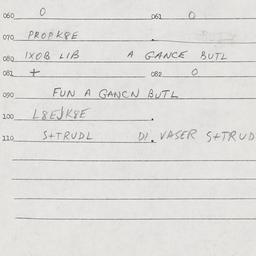 060 0 061 0
070 PROPK8E .
080 IXOB LIB A GANCE BUTL
081 + 082 0
090 FUN A GANCN BUTL
100 L8EJK8E .
110 S+TRUDL DI. VASER S+TRUD